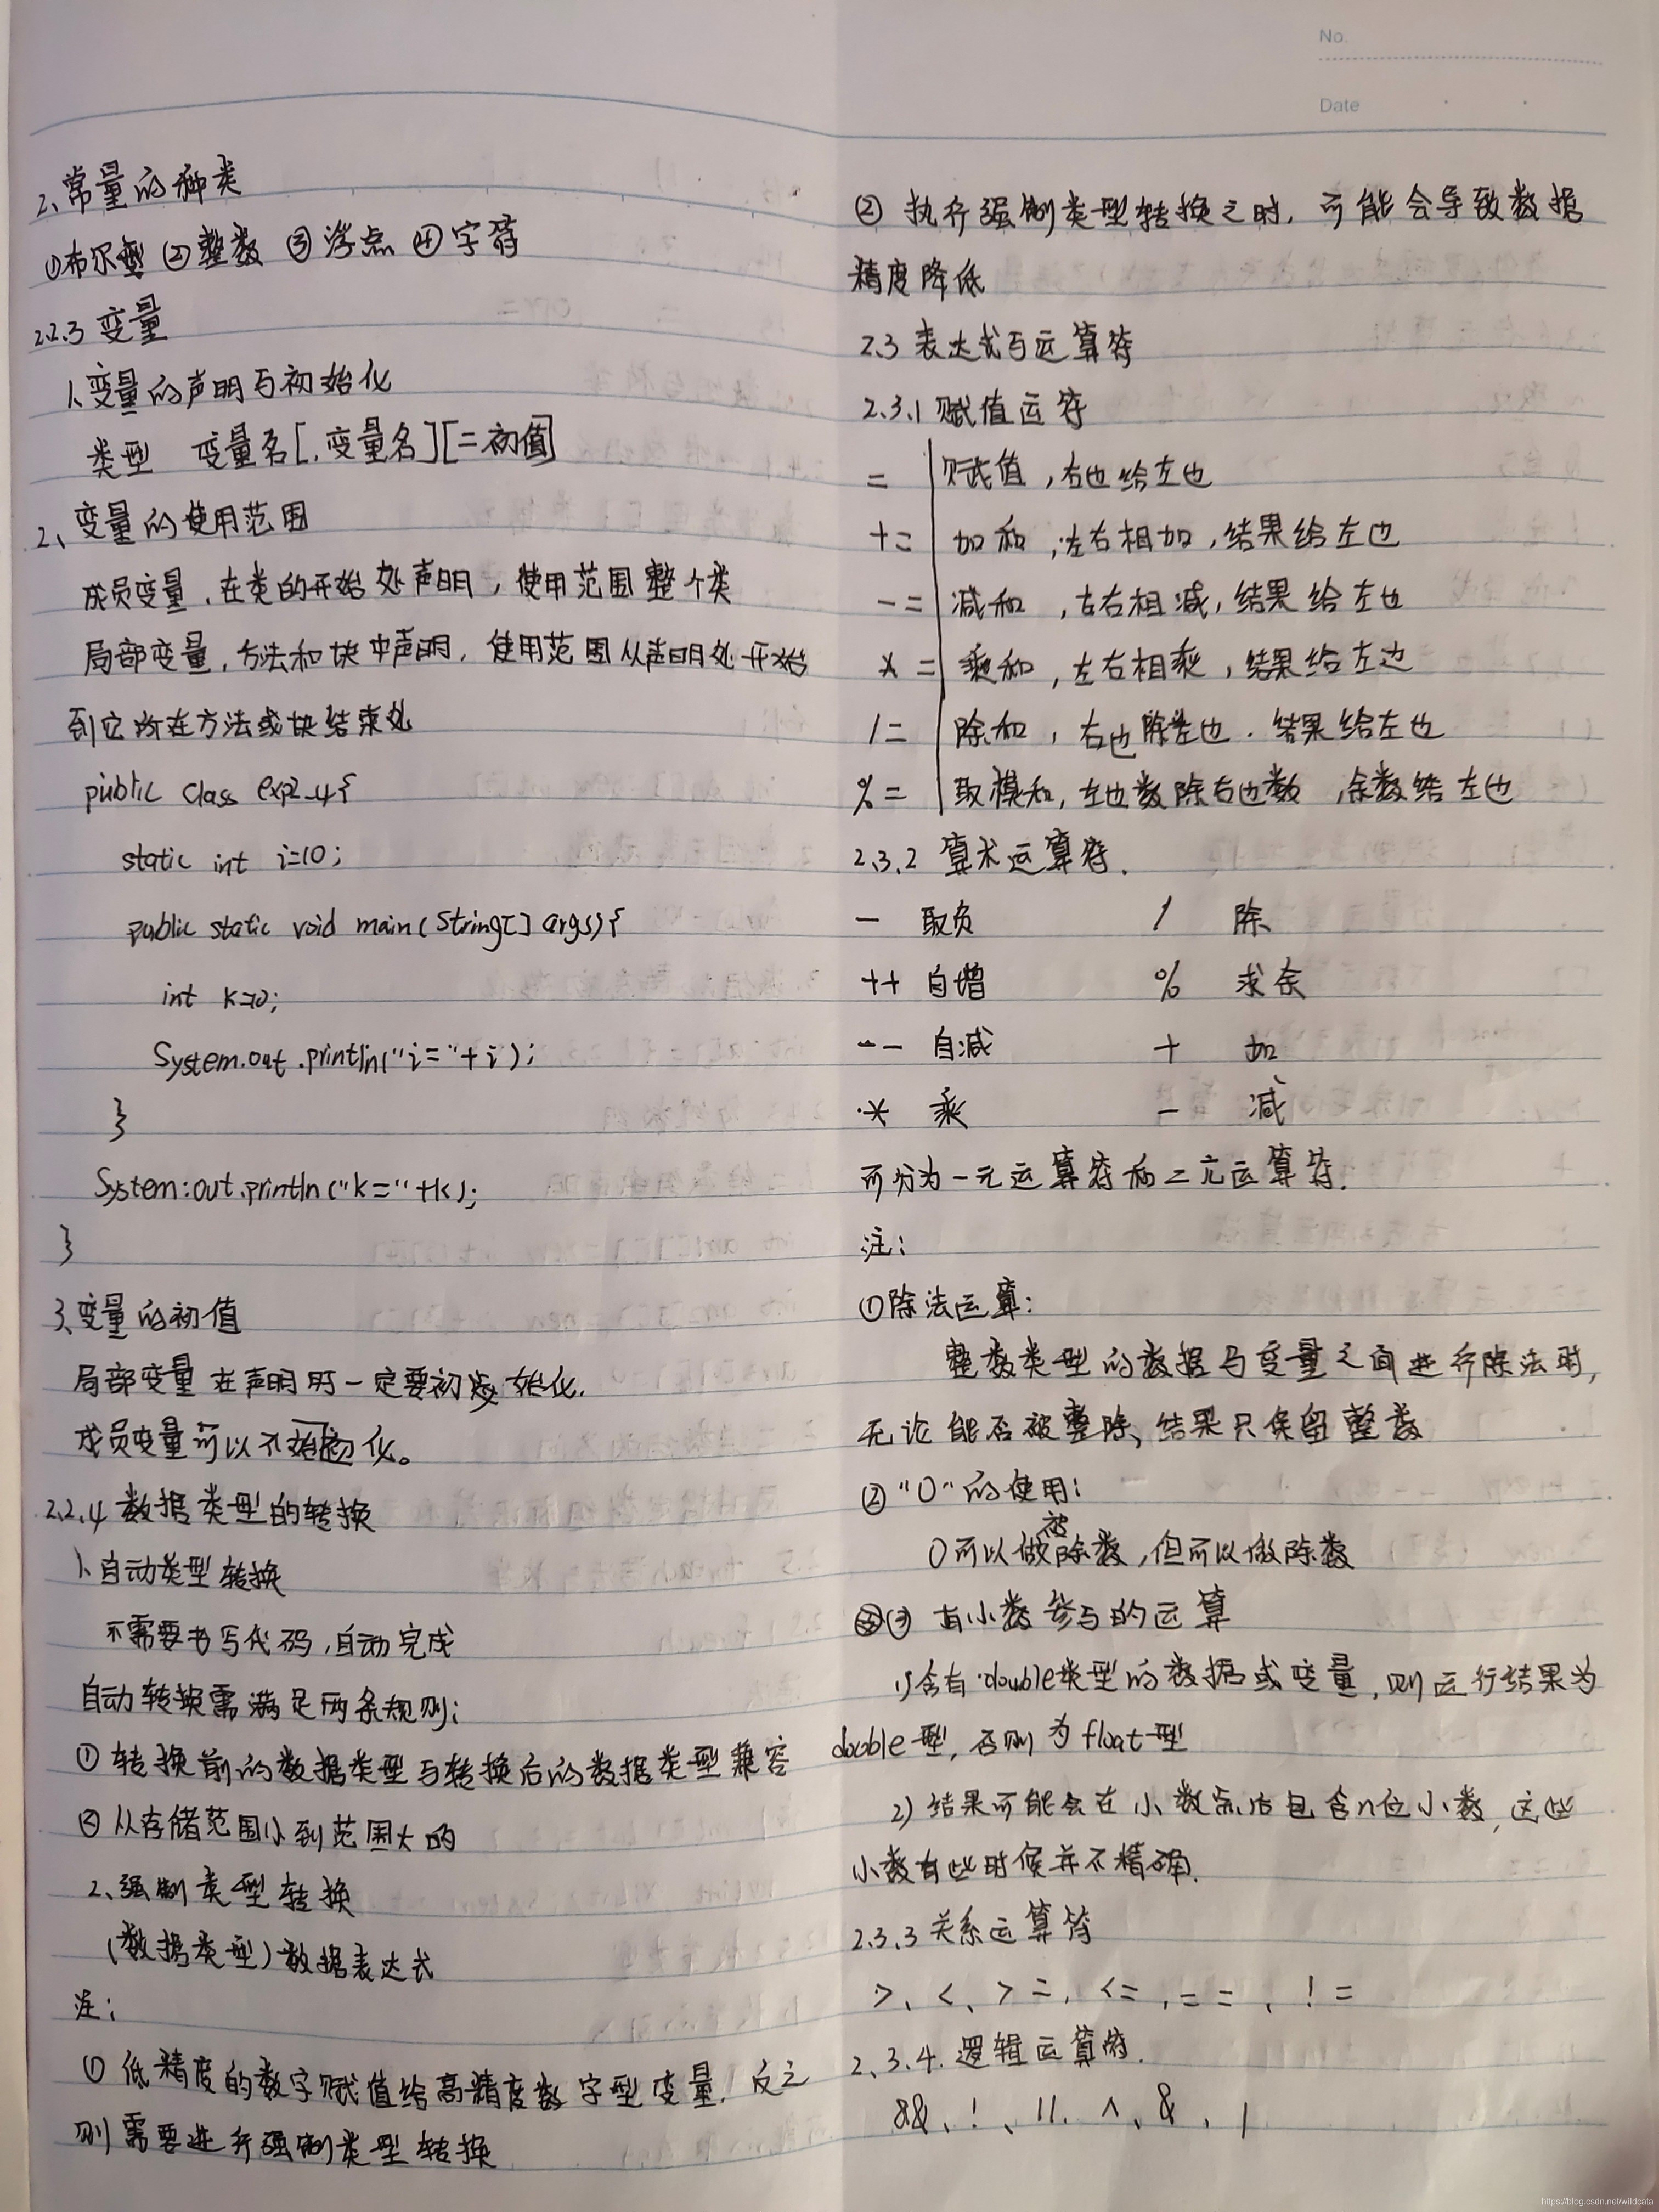 No.
Date
2、常量的种类
①布尔型 ②整数 ③浮点 ④字符
2.2.3 变量
1.变量的声明与初始化
类型 变量名[,变量名][=初值]
2、变量的使用范围
成员变量,在类的开始处声明,使用范围整个类
局部变量,方法和块中声明,使用范围从声明处开始
到它所在方法或块结束处
public class exp2_4{
static int i=10;
public static void main(String[] args){
int k=10;
System.out.println("i="+i);
}
System.out.println("k="+k);
}
3、变量的初值
局部变量在声明时一定要初始化.
成员变量可以不初始化。
2.2.4 数据类型的转换
1.自动类型转换
不需要书写代码,自动完成
自动转换需满足两条规则:
①转换前的数据类型与转换后的数据类型兼容
②从存储范围小到范围大的
2、强制类型转换
(数据类型)数据表达式
注:
①低精度的数字赋值给高精度数字型变量.反之
则需要进行强制类型转换
②执行强制类型转换之时,可能会导致数据
精度降低
2.3 表达式与运算符
2.3.1 赋值运符
= 赋值,右也给左也
+= 加和,左右相加,结果给左也
-= 减和,左右相减,结果给左也
*= 乘和,左右相乘,结果给左边
/= 除和,右也除左也.结果给左也
%= 取模和,左也数除右也数,余数给左也
2.3.2 算术运算符.
- 取负 / 除
++ 自增 % 求余
-- 自减 + 加
* 乘 - 减
可分为一元运算符和二元运算符.
注:
①除法运算:
整数类型的数据与变量之间进行除法时,
无论能否被整除、结果只保留整数
②"0"的使用:
0可以做被除数,但可以做除数
③有小数参与的运算
1)含有double类型的数据或变量,则运行结果为
double型,否则为float型
2)结果可能会在小数点后包含n位小数,这些
小数有些时候并不精确.
2.3.3 关系运算符
>、<、>=,<=,==,!=
2.3.4.逻辑运算符.
&&、!、||、^、&、|
https://blog.csdn.net/wildcata